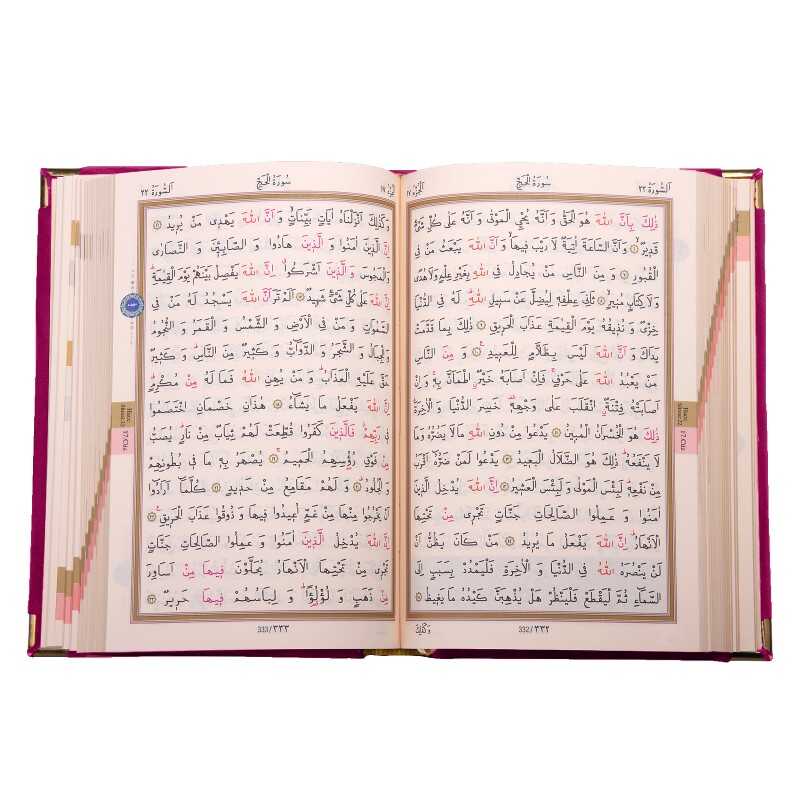 اَلسُّورَةُ ٢٢ سُورَةُ الْحَجِّ اَلْجُزْءُ ١٧
ذٰلِكَ بِاَنَّ اللّٰهَ هُوَ الْحَقُّ وَ اَنَّهُ يُحْيِ الْمَوْتٰى وَ اَنَّهُ عَلٰى كُلِّ شَيْءٍ
قَدِيرٌ ٦ وَ اَنَّ السَّاعَةَ اٰتِيَةٌ لَا رَيْبَ فِيهَا وَ اَنَّ اللّٰهَ يَبْعَثُ مَنْ فِي
الْقُبُورِ ٧ وَ مِنَ النَّاسِ مَنْ يُجَادِلُ فِي اللّٰهِ بِغَيْرِ عِلْمٍ وَلَا هُدًى
وَلَا كِتَابٍ مُنِيرٍ ٨ ثَانِيَ عِطْفِهِ لِيُضِلَّ عَنْ سَبِيلِ اللّٰهِ لَهُ فِي الدُّنْيَا
خِزْيٌ وَ نُذِيقُهُ يَوْمَ الْقِيٰمَةِ عَذَابَ الْحَرِيقِ ٩ ذٰلِكَ بِمَا قَدَّمَتْ
يَدَاكَ وَ اَنَّ اللّٰهَ لَيْسَ بِظَلَّامٍ لِلْعَبِيدِ ١٠ وَ مِنَ النَّاسِ
مَنْ يَعْبُدُ اللّٰهَ عَلٰى حَرْفٍ فَاِنْ اَصَابَهُ خَيْرٌ اطْمَاَنَّ بِهِ وَ اِنْ
اَصَابَتْهُ فِتْنَةٌ انْقَلَبَ عَلٰى وَجْهِهِ خَسِرَ الدُّنْيَا وَ الْاٰخِرَةَ
ذٰلِكَ هُوَ الْخُسْرَانُ الْمُبِينُ ١١ يَدْعُوا مِنْ دُونِ اللّٰهِ مَا لَا يَضُرُّهُ وَمَا
لَا يَنْفَعُهُ ذٰلِكَ هُوَ الضَّلَالُ الْبَعِيدُ ١٢ يَدْعُوا لَمَنْ ضَرُّهُ اَقْرَبُ
مِنْ نَفْعِهِ لَبِئْسَ الْمَوْلٰى وَ لَبِئْسَ الْعَشِيرُ ١٣ اِنَّ اللّٰهَ يُدْخِلُ الَّذِينَ
اٰمَنُوا وَ عَمِلُوا الصَّالِحَاتِ جَنَّاتٍ تَجْرِي مِنْ تَحْتِهَا
الْاَنْهَارُ اِنَّ اللّٰهَ يَفْعَلُ مَا يُرِيدُ ١٤ مَنْ كَانَ يَظُنُّ اَنْ
لَنْ يَنْصُرَهُ اللّٰهُ فِي الدُّنْيَا وَ الْاٰخِرَةِ فَلْيَمْدُدْ بِسَبَبٍ اِلَى
السَّمَاءِ ثُمَّ لْيَقْطَعْ فَلْيَنْظُرْ هَلْ يُذْهِبَنَّ كَيْدُهُ مَا يَغِيظُ ١٥
332/٣٣٢ وَكَذٰلِكَ
Hacc Suresi:22 17.Cüz
اَلسُّورَةُ ٢٢ سُورَةُ الْحَجِّ اَلْجُزْءُ ١٧
وَكَذٰلِكَ اَنْزَلْنَاهُ اٰيَاتٍ بَيِّنَاتٍ وَ اَنَّ اللّٰهَ يَهْدِي مَنْ يُرِيدُ ١٦
اِنَّ الَّذِينَ اٰمَنُوا وَ الَّذِينَ هَادُوا وَ الصَّابِئِينَ وَ النَّصَارٰى
وَ الْمَجُوسَ وَ الَّذِينَ اَشْرَكُوا اِنَّ اللّٰهَ يَفْصِلُ بَيْنَهُمْ يَوْمَ الْقِيٰمَةِ
اِنَّ اللّٰهَ عَلٰى كُلِّ شَيْءٍ شَهِيدٌ ١٧ اَلَمْ تَرَ اَنَّ اللّٰهَ يَسْجُدُ لَهُ مَنْ فِي
السَّمٰوَاتِ وَ مَنْ فِي الْاَرْضِ وَ الشَّمْسُ وَ الْقَمَرُ وَ النُّجُومُ
وَ الْجِبَالُ وَ الشَّجَرُ وَ الدَّوَابُّ وَ كَثِيرٌ مِنَ النَّاسِ وَ كَثِيرٌ
حَقَّ عَلَيْهِ الْعَذَابُ وَ مَنْ يُهِنِ اللّٰهُ فَمَا لَهُ مِنْ مُكْرِمٍ
اِنَّ اللّٰهَ يَفْعَلُ مَا يَشَاءُ ١٨ هٰذَانِ خَصْمَانِ اخْتَصَمُوا
فِي رَبِّهِمْ فَالَّذِينَ كَفَرُوا قُطِّعَتْ لَهُمْ ثِيَابٌ مِنْ نَارٍ يُصَبُّ
مِنْ فَوْقِ رُؤُسِهِمُ الْحَمِيمُ ١٩ يُصْهَرُ بِهِ مَا فِي بُطُونِهِمْ
وَ الْجُلُودُ ٢٠ وَ لَهُمْ مَقَامِعُ مِنْ حَدِيدٍ ٢١ كُلَّمَا اَرَادُوا
اَنْ يَخْرُجُوا مِنْهَا مِنْ غَمٍّ اُعِيدُوا فِيهَا وَ ذُوقُوا عَذَابَ الْحَرِيقِ ٢٢
اِنَّ اللّٰهَ يُدْخِلُ الَّذِينَ اٰمَنُوا وَ عَمِلُوا الصَّالِحَاتِ جَنَّاتٍ
تَجْرِي مِنْ تَحْتِهَا الْاَنْهَارُ يُحَلَّوْنَ فِيهَا مِنْ اَسَاوِرَ
مِنْ ذَهَبٍ وَ لُؤْلُؤًا وَ لِبَاسُهُمْ فِيهَا حَرِيرٌ ٢٣
333/٣٣٣
Hacc Suresi:22 17.Cüz